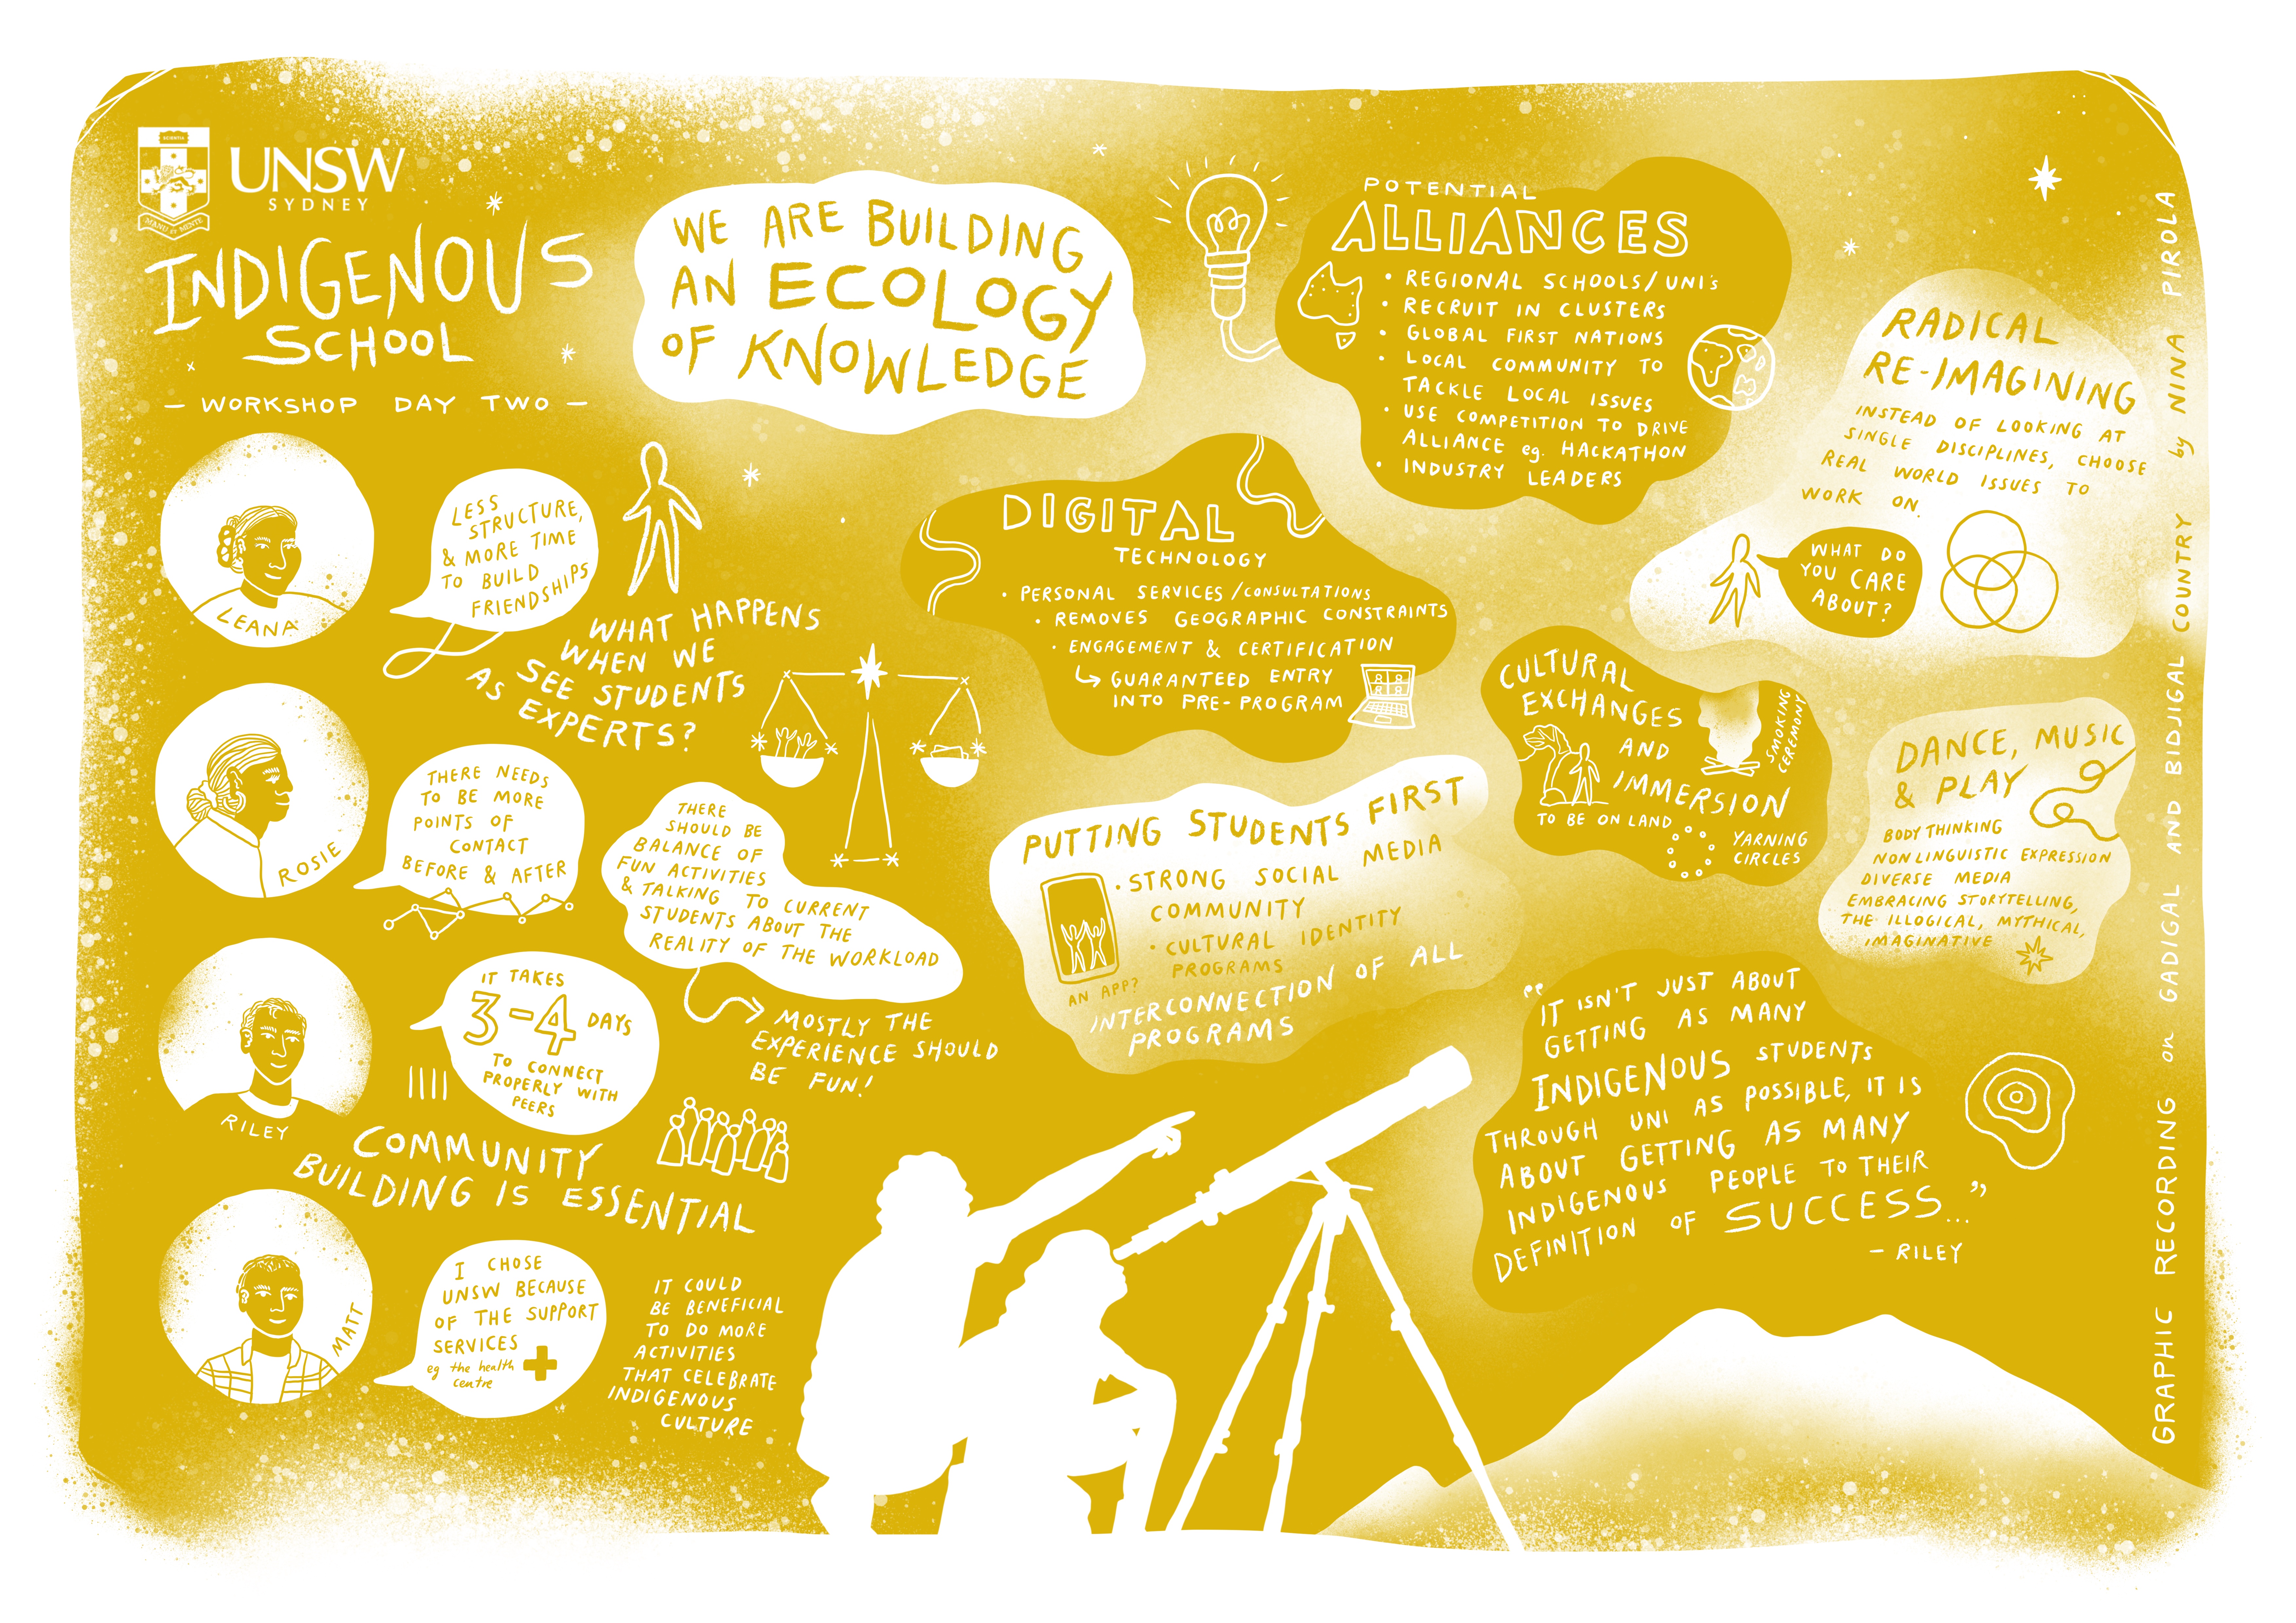 SCIENTIA
MANU ET MENTE
UNSW
SYDNEY
INDIGENOUS
SCHOOL
— WORKSHOP DAY TWO —
WE ARE BUILDING
AN ECOLOGY
OF KNOWLEDGE
LEANA
LESS
STRUCTURE,
& MORE TIME
TO BUILD
FRIENDSHIPS
WHAT HAPPENS
WHEN WE
SEE STUDENTS
AS EXPERTS?
ROSIE
THERE NEEDS
TO BE MORE
POINTS OF
CONTACT
BEFORE & AFTER
THERE
SHOULD BE
BALANCE OF
FUN ACTIVITIES
& TALKING TO CURRENT
STUDENTS ABOUT THE
REALITY OF THE WORKLOAD
MOSTLY THE
EXPERIENCE SHOULD
BE FUN!
RILEY
IT TAKES
3-4 DAYS
TO CONNECT
PROPERLY WITH
PEERS
COMMUNITY
BUILDING IS ESSENTIAL
MATT
I CHOSE
UNSW BECAUSE
OF THE SUPPORT
SERVICES
eg the health
centre
IT COULD
BE BENEFICIAL
TO DO MORE
ACTIVITIES
THAT CELEBRATE
INDIGENOUS
CULTURE
POTENTIAL
ALLIANCES
• REGIONAL SCHOOLS/UNI's
• RECRUIT IN CLUSTERS
• GLOBAL FIRST NATIONS
• LOCAL COMMUNITY TO
TACKLE LOCAL ISSUES
• USE COMPETITION TO DRIVE
ALLIANCE eg. HACKATHON
• INDUSTRY LEADERS
DIGITAL
TECHNOLOGY
• PERSONAL SERVICES/CONSULTATIONS
• REMOVES GEOGRAPHIC CONSTRAINTS
• ENGAGEMENT & CERTIFICATION
↳ GUARANTEED ENTRY
INTO PRE-PROGRAM
PUTTING STUDENTS FIRST
• STRONG SOCIAL MEDIA
COMMUNITY
• CULTURAL IDENTITY
PROGRAMS
AN APP?
INTERCONNECTION OF ALL
PROGRAMS
RADICAL
RE-IMAGINING
INSTEAD OF LOOKING AT
SINGLE DISCIPLINES, CHOOSE
REAL WORLD ISSUES TO
WORK ON.
WHAT DO
YOU CARE
ABOUT?
CULTURAL
EXCHANGES
AND
IMMERSION
SMOKING
CEREMONY
TO BE ON LAND
YARNING
CIRCLES
DANCE, MUSIC
& PLAY
BODY THINKING
NON LINGUISTIC EXPRESSION
DIVERSE MEDIA
EMBRACING STORYTELLING,
THE ILLOGICAL, MYTHICAL,
IMAGINATIVE
"IT ISN'T JUST ABOUT
GETTING AS MANY
INDIGENOUS STUDENTS
THROUGH UNI AS POSSIBLE, IT IS
ABOUT GETTING AS MANY
INDIGENOUS PEOPLE TO THEIR
DEFINITION OF SUCCESS..."
- RILEY
GRAPHIC RECORDING on GADIGAL AND BIDJIGAL COUNTRY by NINA PIROLA